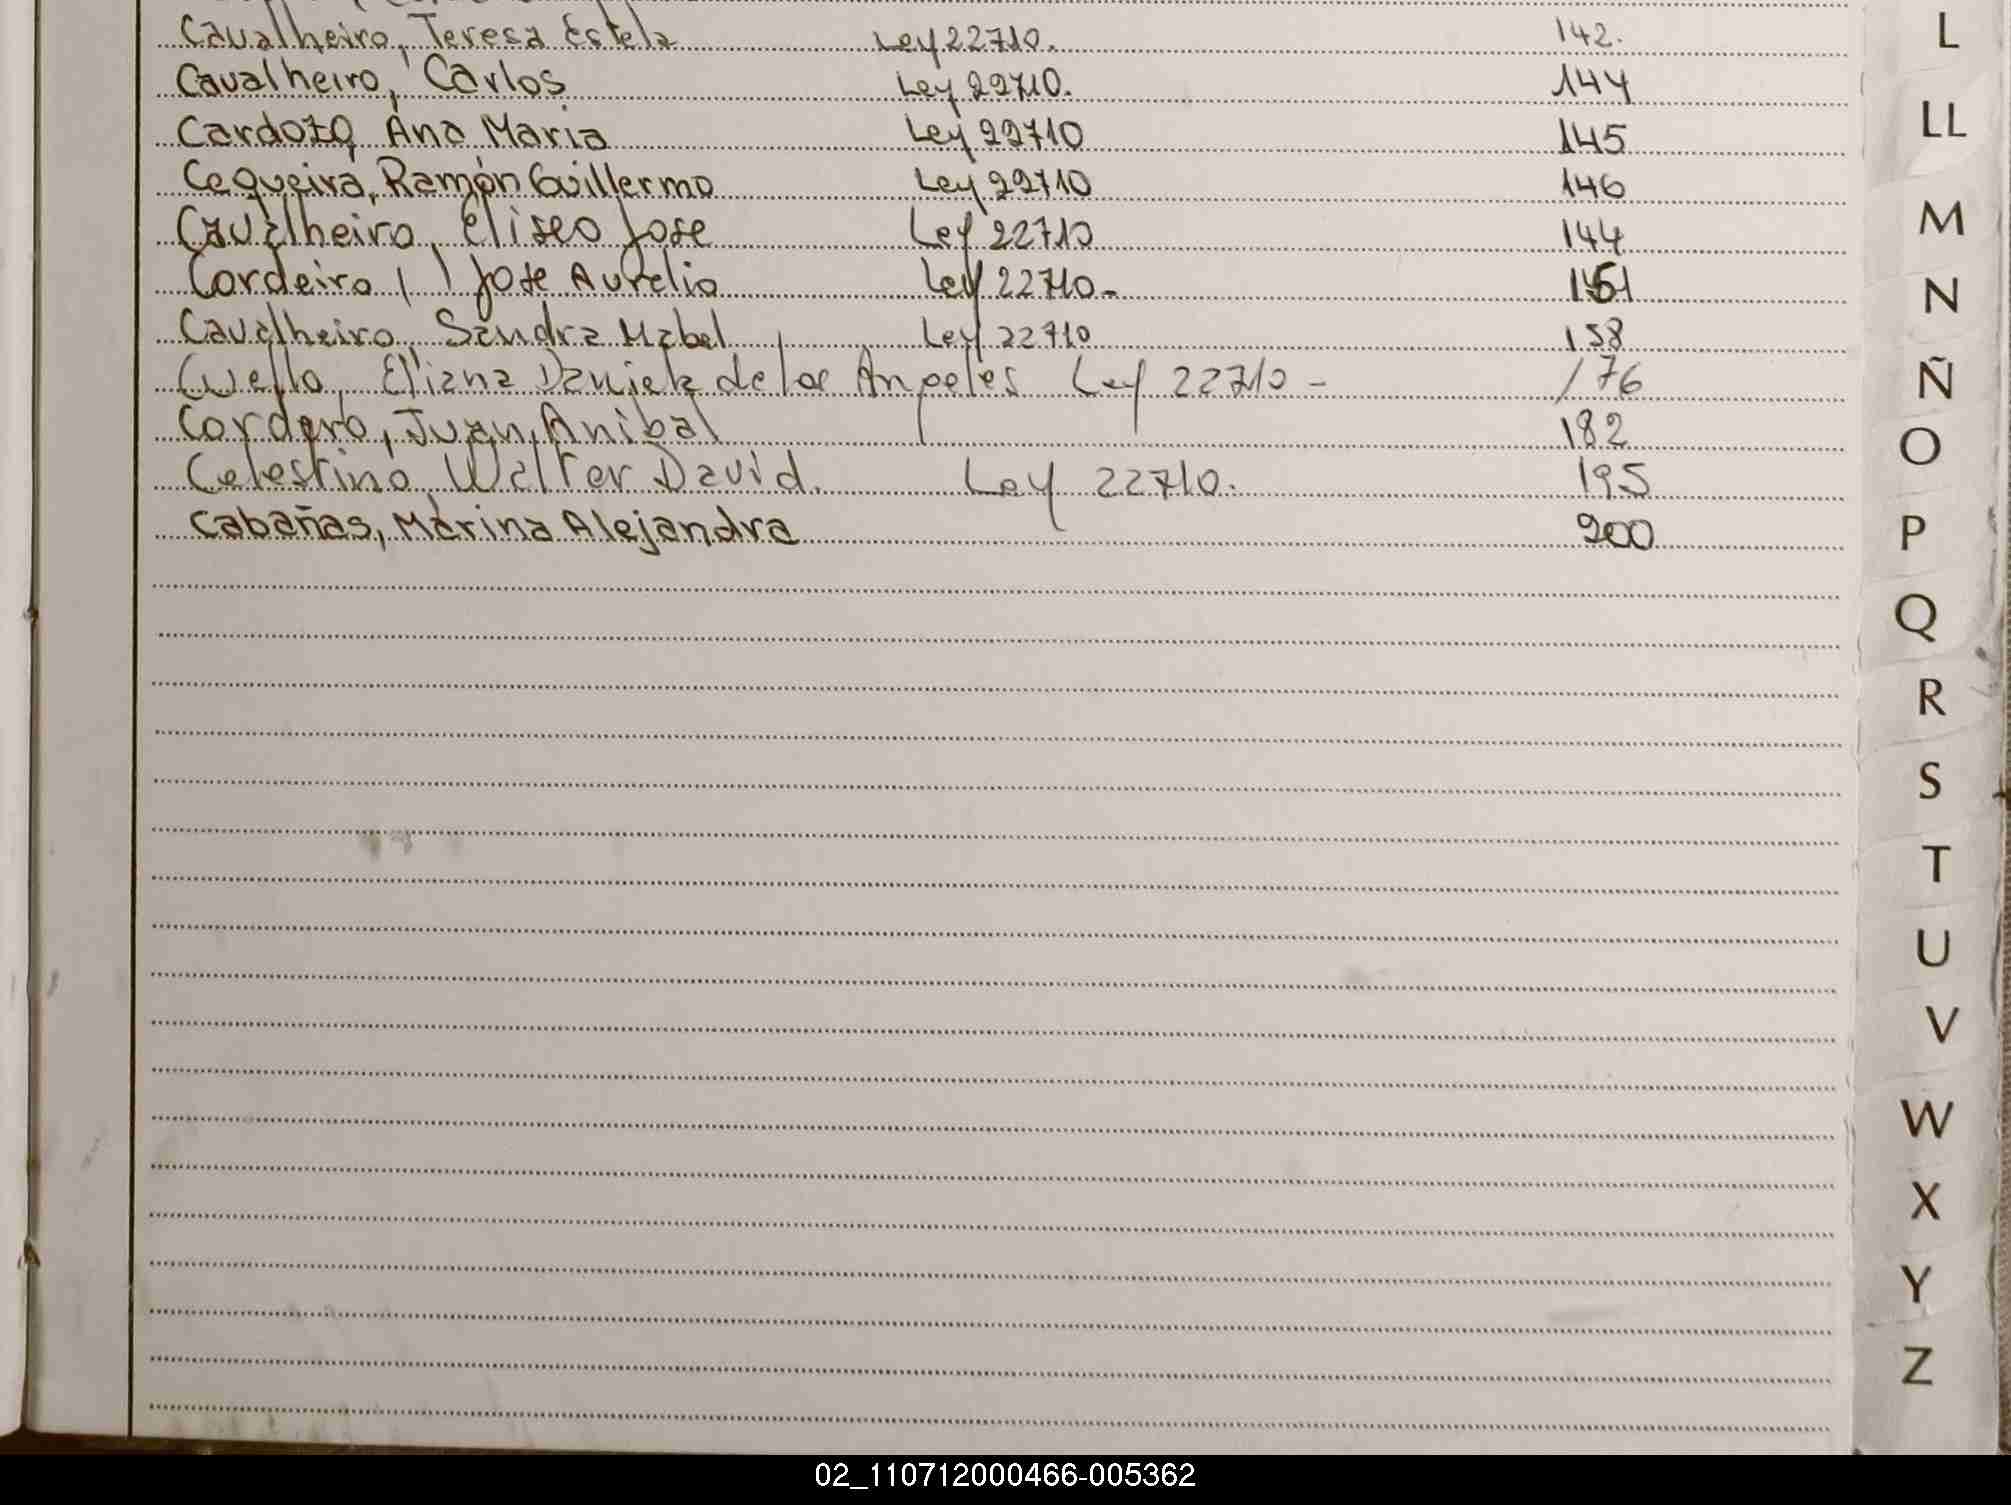 Cavalheiro, Teresa Estela Ley 22710. 142.
Cavalheiro, Carlos Ley 22710. 144
Cardozo, Ana Maria Ley 22710 145
Cequeira, Ramón Guillermo Ley 22710 146
Cavalheiro, Eliseo Jose Ley 22710 144
Cordeiro, Jose Aurelio Ley 22710- 151
Cavalheiro, Sandra Mabel Ley 22710 158
Cuello, Eliana Daniela de los Angeles Ley 22710- 176
Cordero, Juan Anibal 182
Celestino, Walter David. Ley 22710. 195
Cabañas, Marina Alejandra 200
L
LL
M
N
Ñ
O
P
Q
R
S
T
U
V
W
X
Y
Z
02_110712000466-005362